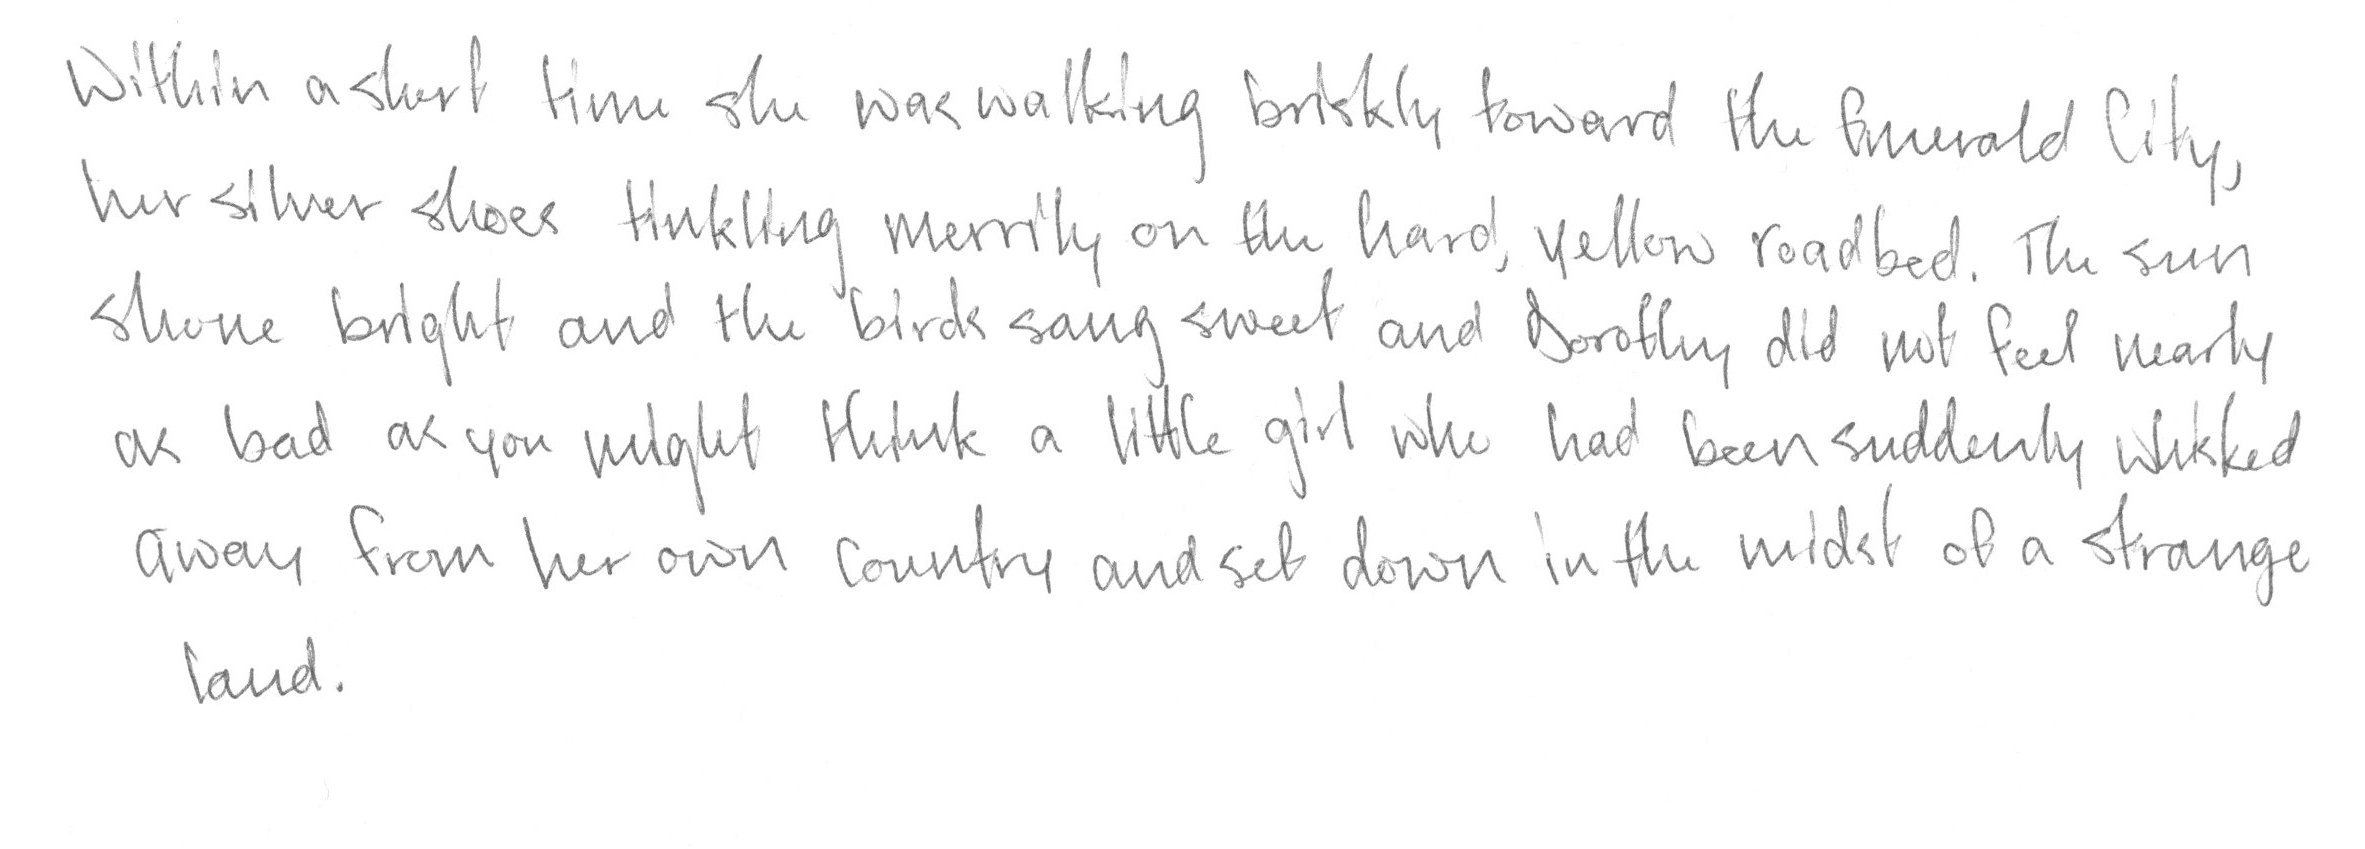 Within a short time she was walking briskly toward the Emerald City,
her silver shoes tinkling merrily on the hard, yellow roadbed. The sun
shone bright and the birds sang sweet and Dorothy did not feel nearly
as bad as you might think a little girl who had been suddenly whisked
away from her own country and set down in the midst of a strange
land.